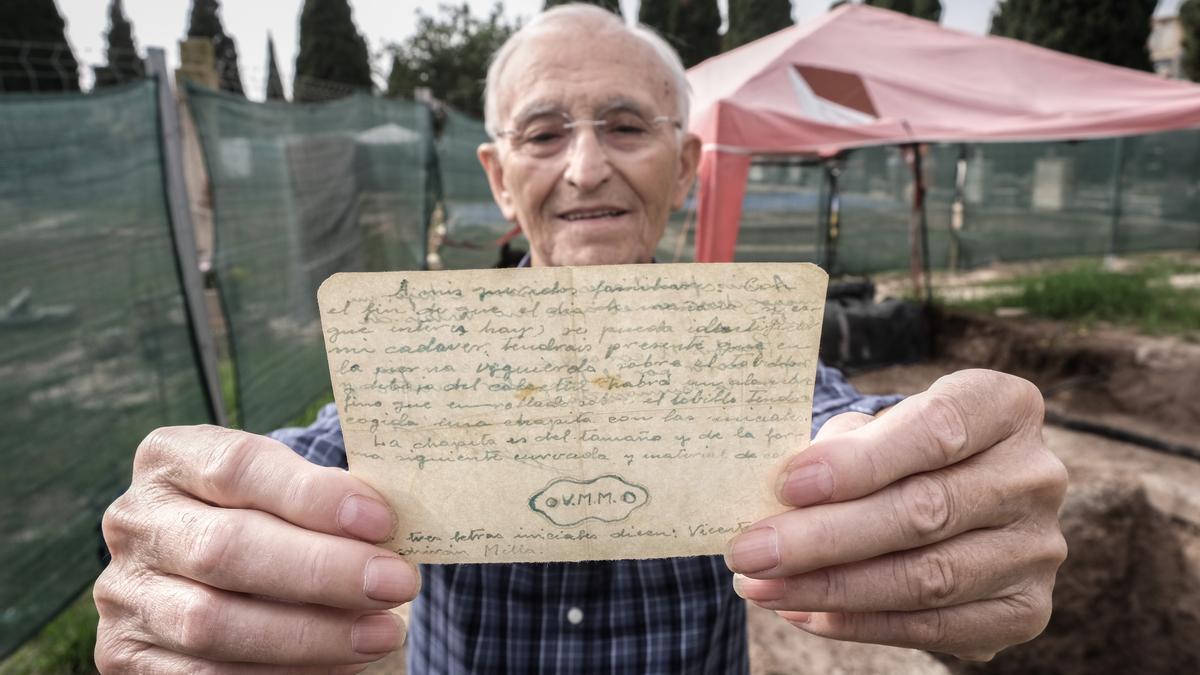 A mis queridos familiares: Con
el fin de que el día de mañana
que interés hay, se pueda identificar
mi cadáver, tendrais presente que en
la pierna izquierda, sobre el tobillo
y debajo del calcetín habrá un
fino que enrrollado sobre el tobillo tendrá
cogida una chapita con las iniciales
La chapita es del tamaño y de la for
ma siguiente curvada y material de
V.M.M.
tres letras iniciales dicen: Vicente
Milla.